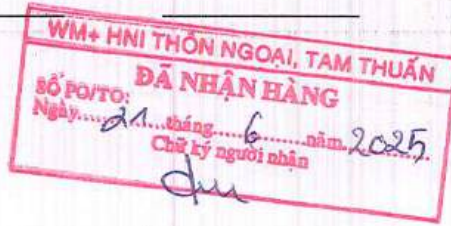 WM+ HNI THÔN NGOẠI, TAM THUẤN
ĐÃ NHẬN HÀNG
SỐ PO/TO:
Ngày.....21.....tháng.....6.........năm..2025..
Chữ ký người nhận